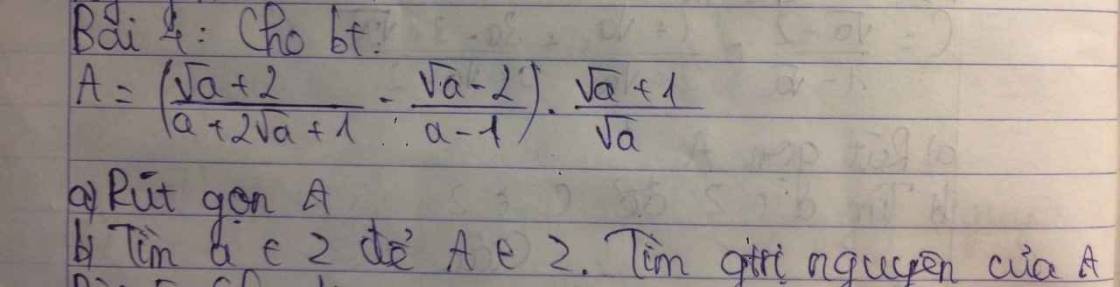 Bài 4: Cho bt:
A = (√a + 2 / a + 2√a + 1 - √a - 2 / a - 1) . √a + 1 / √a
a) Rút gọn A
b) Tìm a ∈ Z để A ∈ Z. Tìm gtrị nguyên của A